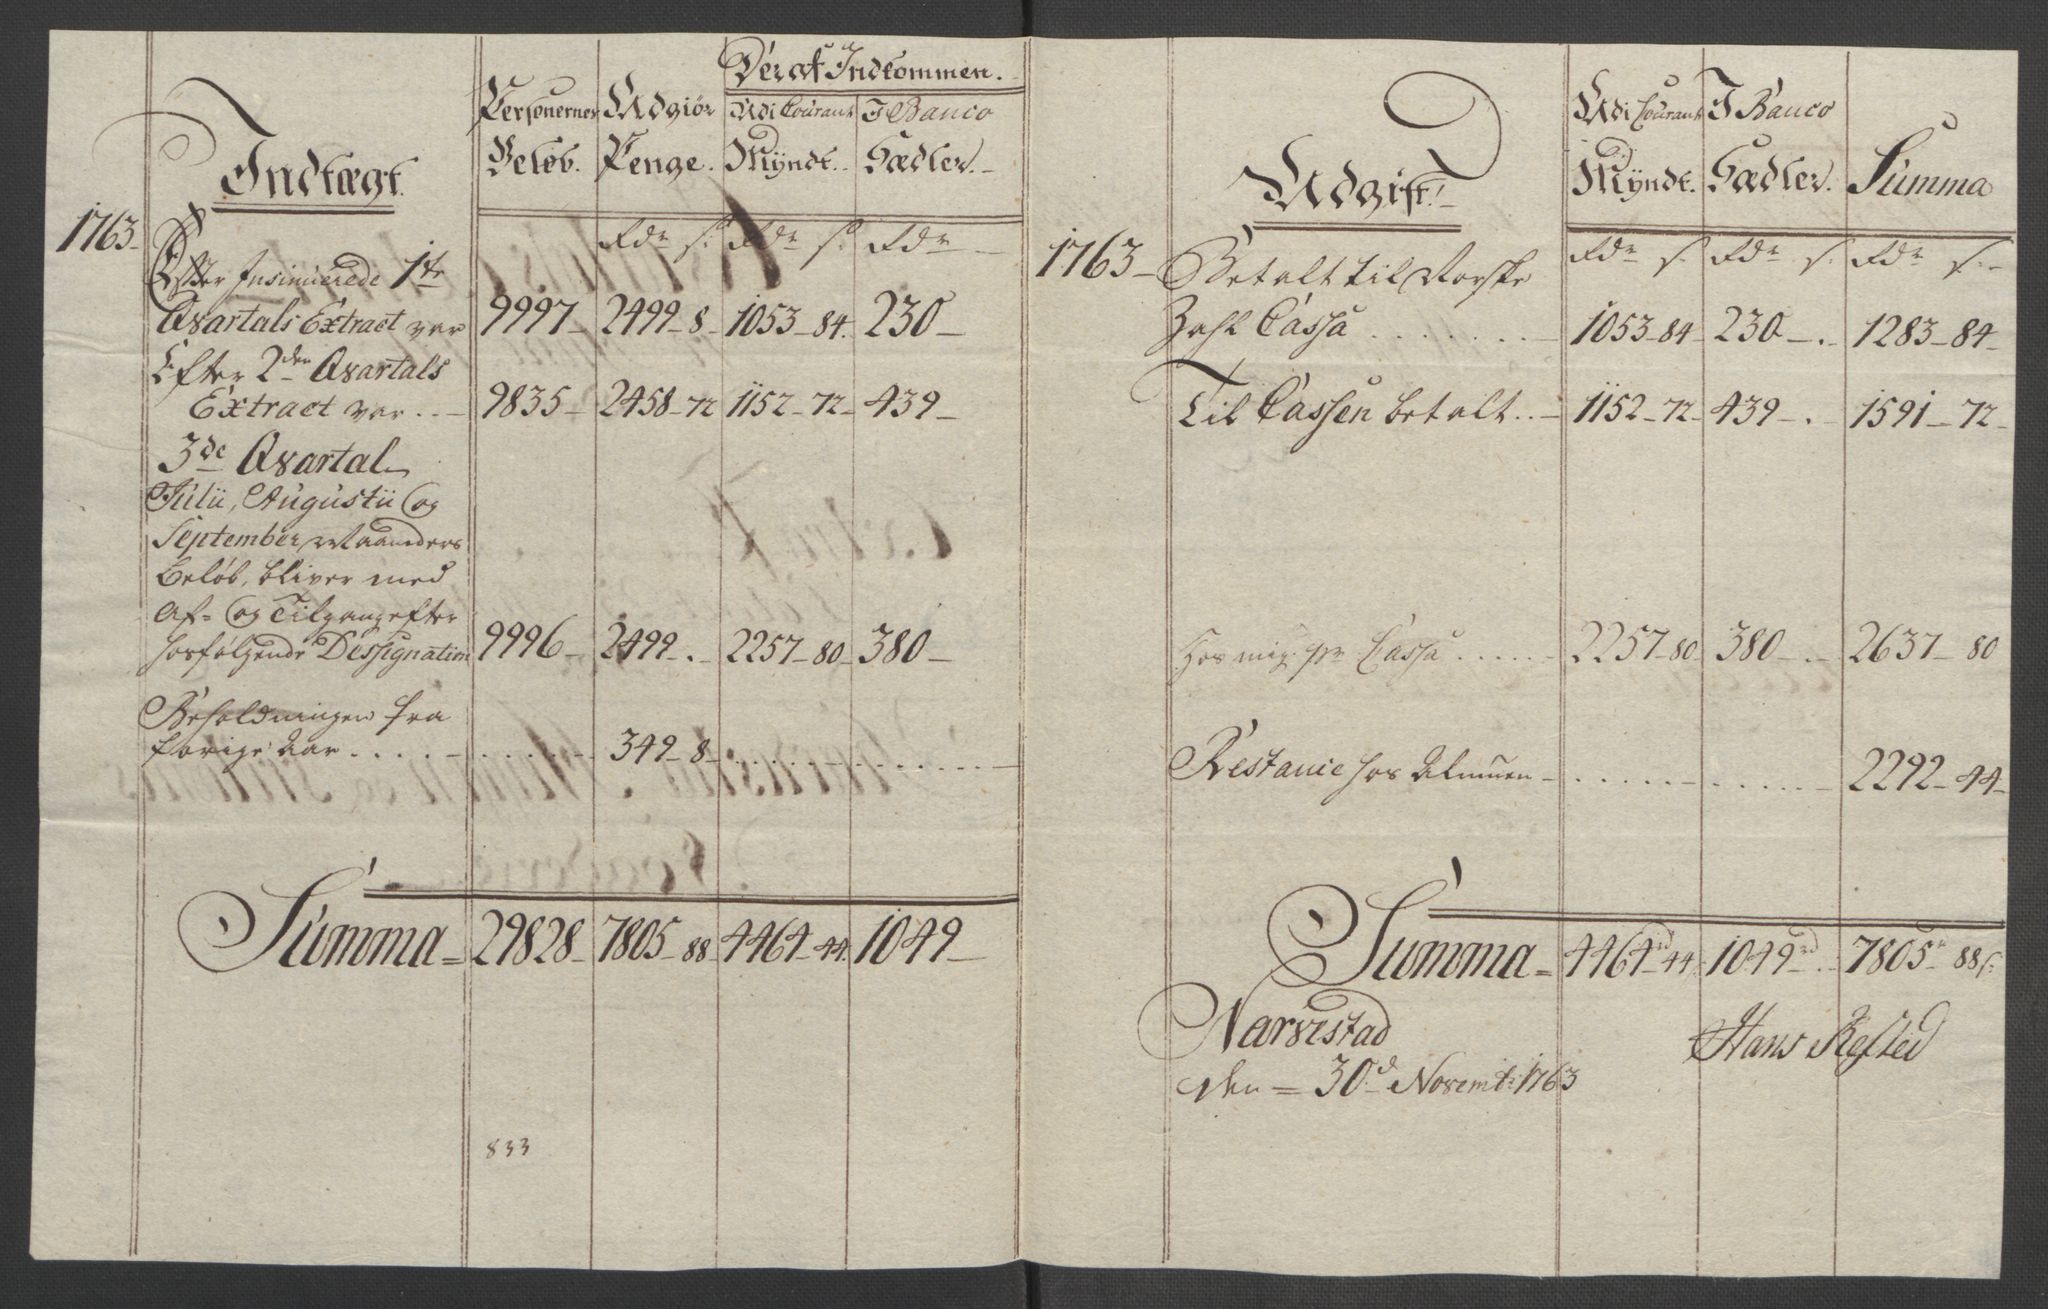 Indtægt.
Personernes
Beløb.
Udgiør
Penge.
Deraf Indkommen.
Udi Courant
Myndt.
I Banco
Sædler.
Rdr s. Rdr s. Rdr
1763
Efter Insinuerede 1te
Qvartals Extract var 9997 2499 8 1053 84. 230
Efter 2den Qvartals
Extract var 9835 2458 72 1152 72 439
3de Qvartal
Julii, Augustii og
September Maaneders
Beløb, bliver med
Af- og Tilgang efter
hosfølgende Dessignation 9996 2499 . 2257 80 380
Beholdningen fra
forige Aar 349 8
Summa = 29828 7805 88 4464 44. 1049
833
Udgift.
Udi Courant
Myndt.
I Banco
Sædler.
Summa
Rdr s. Rdr s. Rdr s.
1763
Betalt til Norske
Zahl Cassa 1053 84 230 . 1283 84
Til Cassen betalt 1152 72 439 . 1591 72
Hos mig pr Cassa 2257 80 380 . 2637 80
Restance hos Almuen 2292 44
Summa = 4464 rd 44 1049 rd . 7805 r 88 s.
Narvestad
den = 30d Novembr: 1763
Hans Refsted